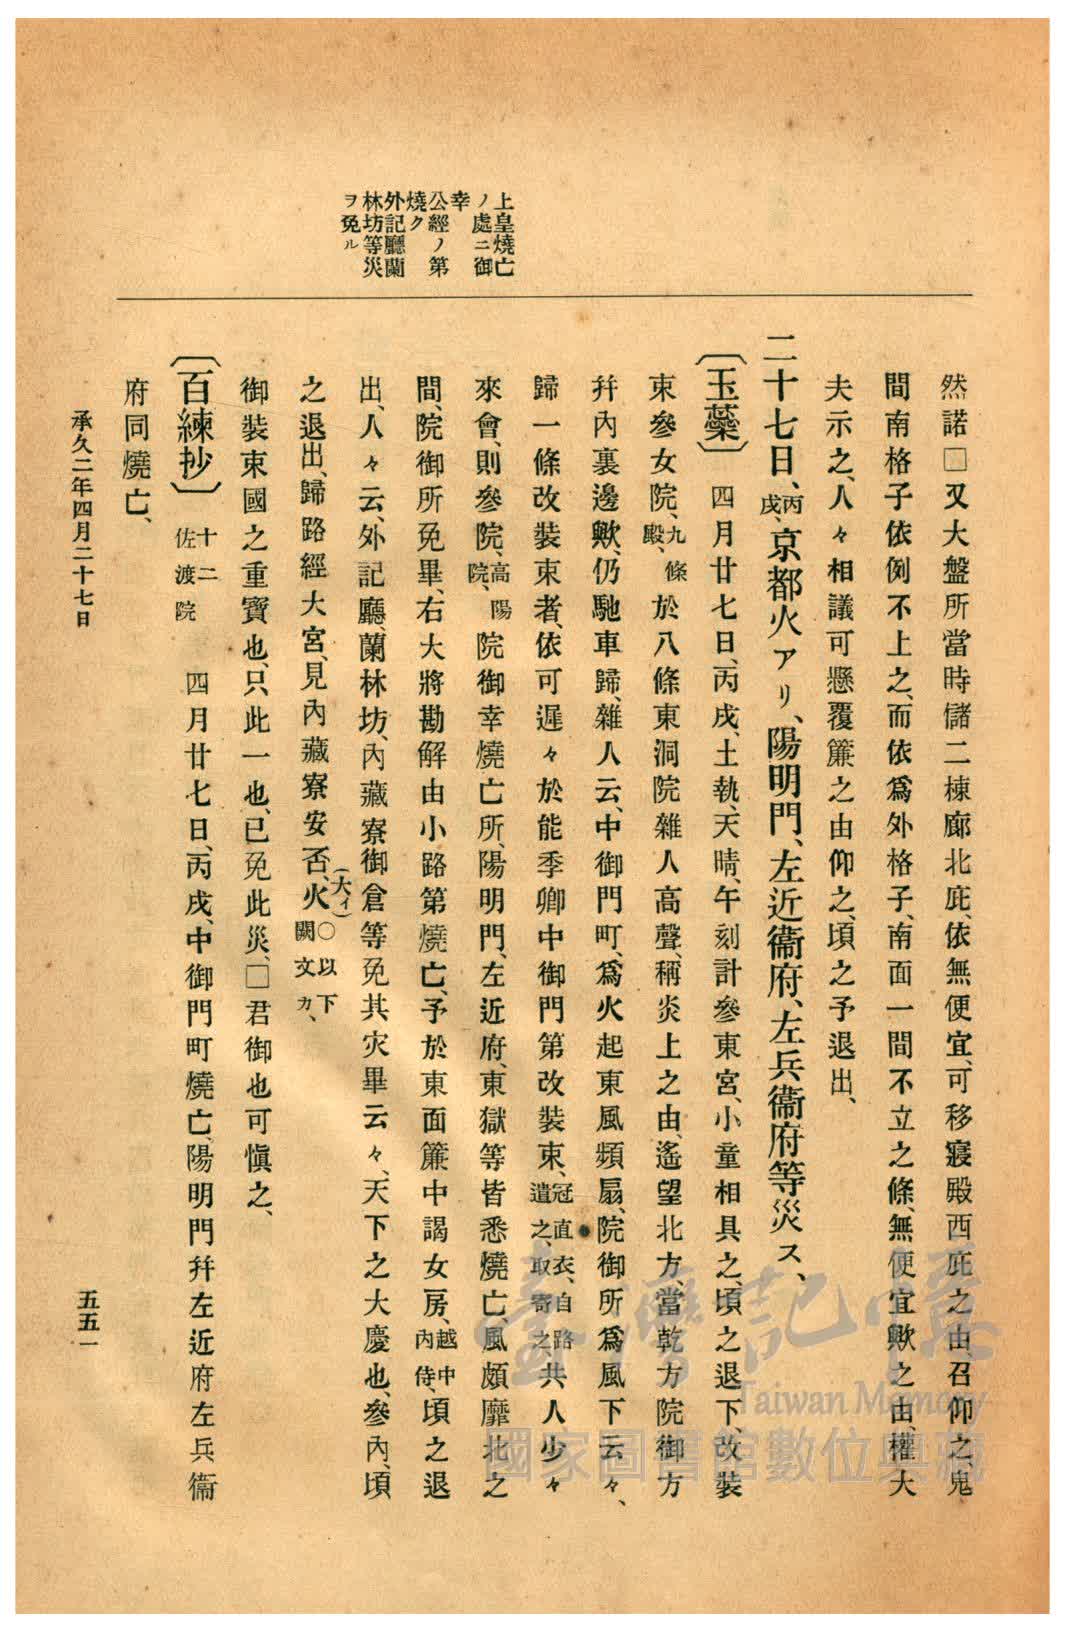 上皇燒亡
ノ處ニ御
幸
公經ノ第
燒ク
外記廳蘭
林坊等災
ヲ免ル
然諾□又大盤所當時儲二棟廊北庇、依無便宜、可移寢殿西庇之由、召仰之、鬼
間南格子依例不上之、而依爲外格子、南面一間不立之條、無便宜歟之由、權大
夫示之、人々相議可懸覆簾之由仰之、頃之予退出、
二十七日、丙戌、京都火アリ、陽明門、左近衞府、左兵衞府等災ス、
〔玉蘂〕 四月廿七日、丙戌、土執、天晴、午刻計參東宮、小童相具之、頃之退下、改裝
束參女院、九條殿、於八條東洞院雜人高聲、稱炎上之由、遙望北方、當乾方院御方
幷內裏邊歟、仍馳車歸、雜人云、中御門町、爲火起東風頻扇、院御所爲風下云々、
歸一條改裝束者、依可遲々於能季卿中御門第改裝束、冠直衣、自路遣之、取寄之、共人少々
來會、則參院、高陽院、院御幸燒亡所、陽明門、左近府、東獄等皆悉燒亡風頗靡北之
間、院御所免畢、右大將勘解由小路第燒亡、予於東面簾中謁女房、越中內侍、頃之退
出、人々云、外記廳、蘭林坊、內藏寮御倉等免其灾畢云々、天下之大慶也、參內、頃
之退出、歸路經大宮、見內藏寮安否、火(大イ)○以下闕文カ、
御裝束國之重寶也、只此一也、已免此災、□君御也可愼之、
〔百練抄〕 十二佐渡院 四月廿七日、丙戌、中御門町燒亡、陽明門幷左近府左兵衞
府同燒亡、
承久二年四月二十七日
五五一
臺灣記憶
Taiwan Memory
國家圖書館數位典藏